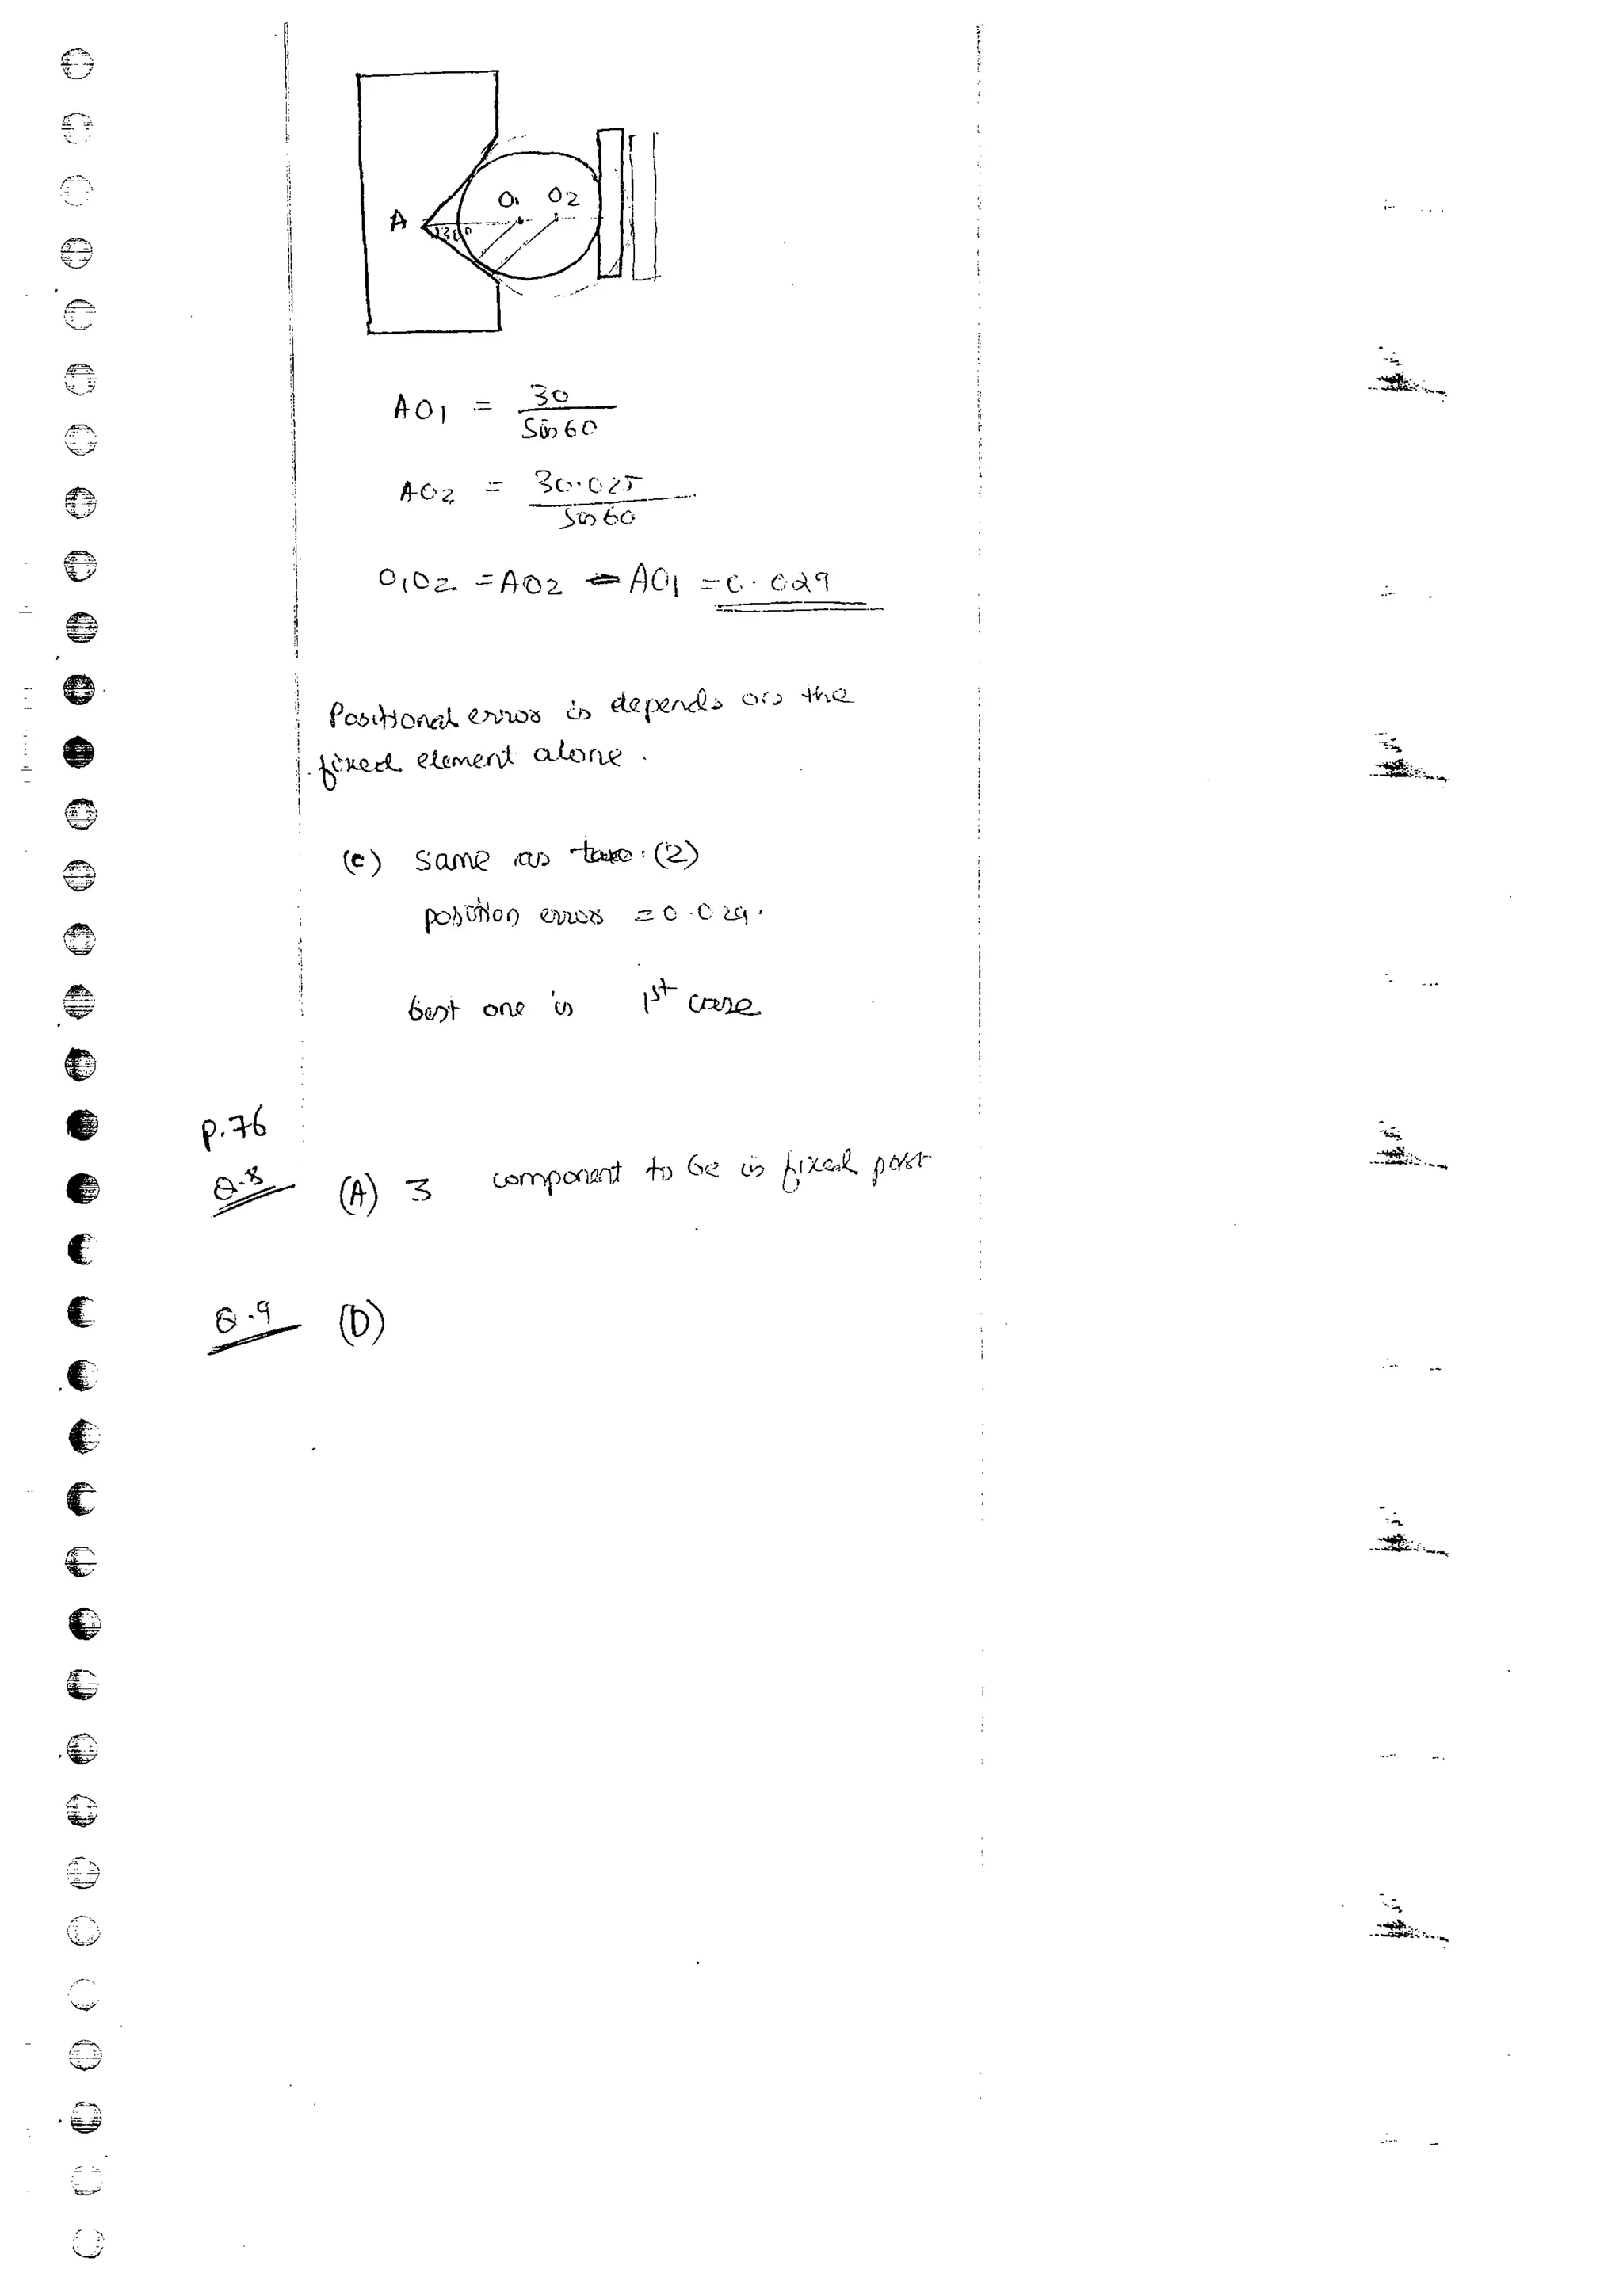 O1 O2
A 30°
AO1 = 30 / Sin 60
AO2 = 30.025 / Sin 60
O1O2 = AO2 - AO1 = 0.029
Positional error is depends on the
fixed element alone.
(c) Same as two: (2)
position error = 0.029.
best one is 1st case
P.76
Q.8 (A) 3 component to be is fixed part
Q.9 (D)